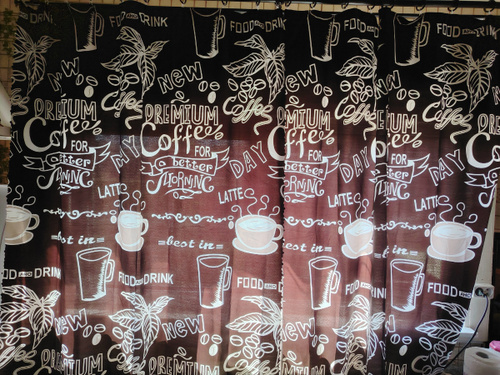 FOOD AND DRINK
FOOD AND DRINK
FOOD
New
NEW
NEW
PREMIUM
Coffee
PREMIUM
Coffee
FOR
a better
MORNING
MY
DAY
Coffee
PREMIUM
Coffee
FOR
a better
MORNING
MY
DAY
PREMIUM
Coffee
FOR
a better
MORNING
LATTE
LATTE
LATTE
LATTE
best in
best in
best in
FOOD AND DRINK
FOOD AND DRINK
FOOD AND DRINK
FOOD AND
New
New
New
PREMIUM
PREMIUM
PREMIUM